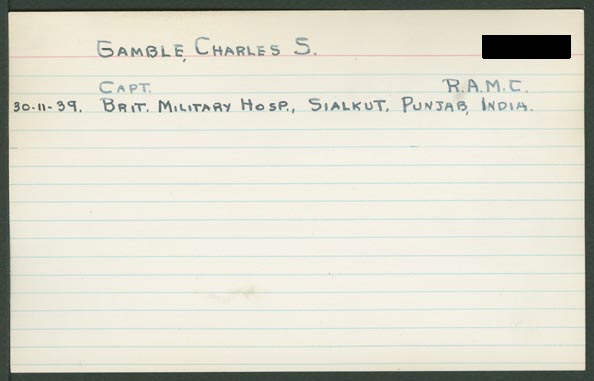 GAMBLE, CHARLES S.
CAPT. R.A.M.C.
30-11-39. BRIT. MILITARY HOSP., SIALKUT, PUNJAB, INDIA.